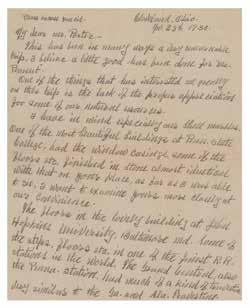 Cleveland, Ohio.
My dear Mrs.
This has been in many days a very
trip, I believe a little good has been done for
One of the things that has interested me greatly
on this trip is the lack of the proper appreciation
for some of our natural
I have in mind especially our
One of the most beautiful buildings at Penn. State
College, had the window casings some of the
floors etc. finished in stone almost identical
with that on your place, as far as I was able
to see, I want to examine yours more closely at
our convenience.
The floors in the lovely building at John
Hopkins University, Baltimore Md. some of
the steps, floors etc. in one of the finest R.R.
stations in the world. The Grand Central, also
the Penna. station, had much of a kind of
very similar to the Ga. and Ala.